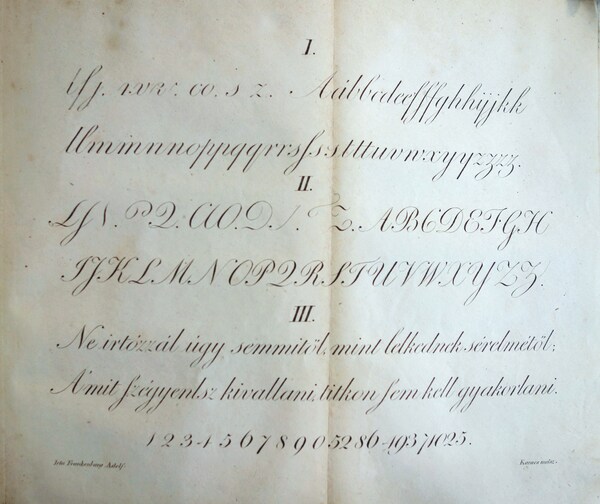 I.
lſj. nvw. co. s z. Aábbcdeefſfghhijjkk
llmmnnnoppqqrrsſsstttuvwxyyzzzz.
II.
P2. CIO. ABCDEFGH
IJKLMNOPQRSTUVWXYZZ.
III.
Ne irtózzál úgy semmitől, mint lelkednek sérelmétől;
Amit ſzégyenlsz kivallani, titkon ſem kell gyakorlani.
1 2 3 4 5 6 7 8 9 0 5286 4937 1025.
Irta Frankenburg Adolf.